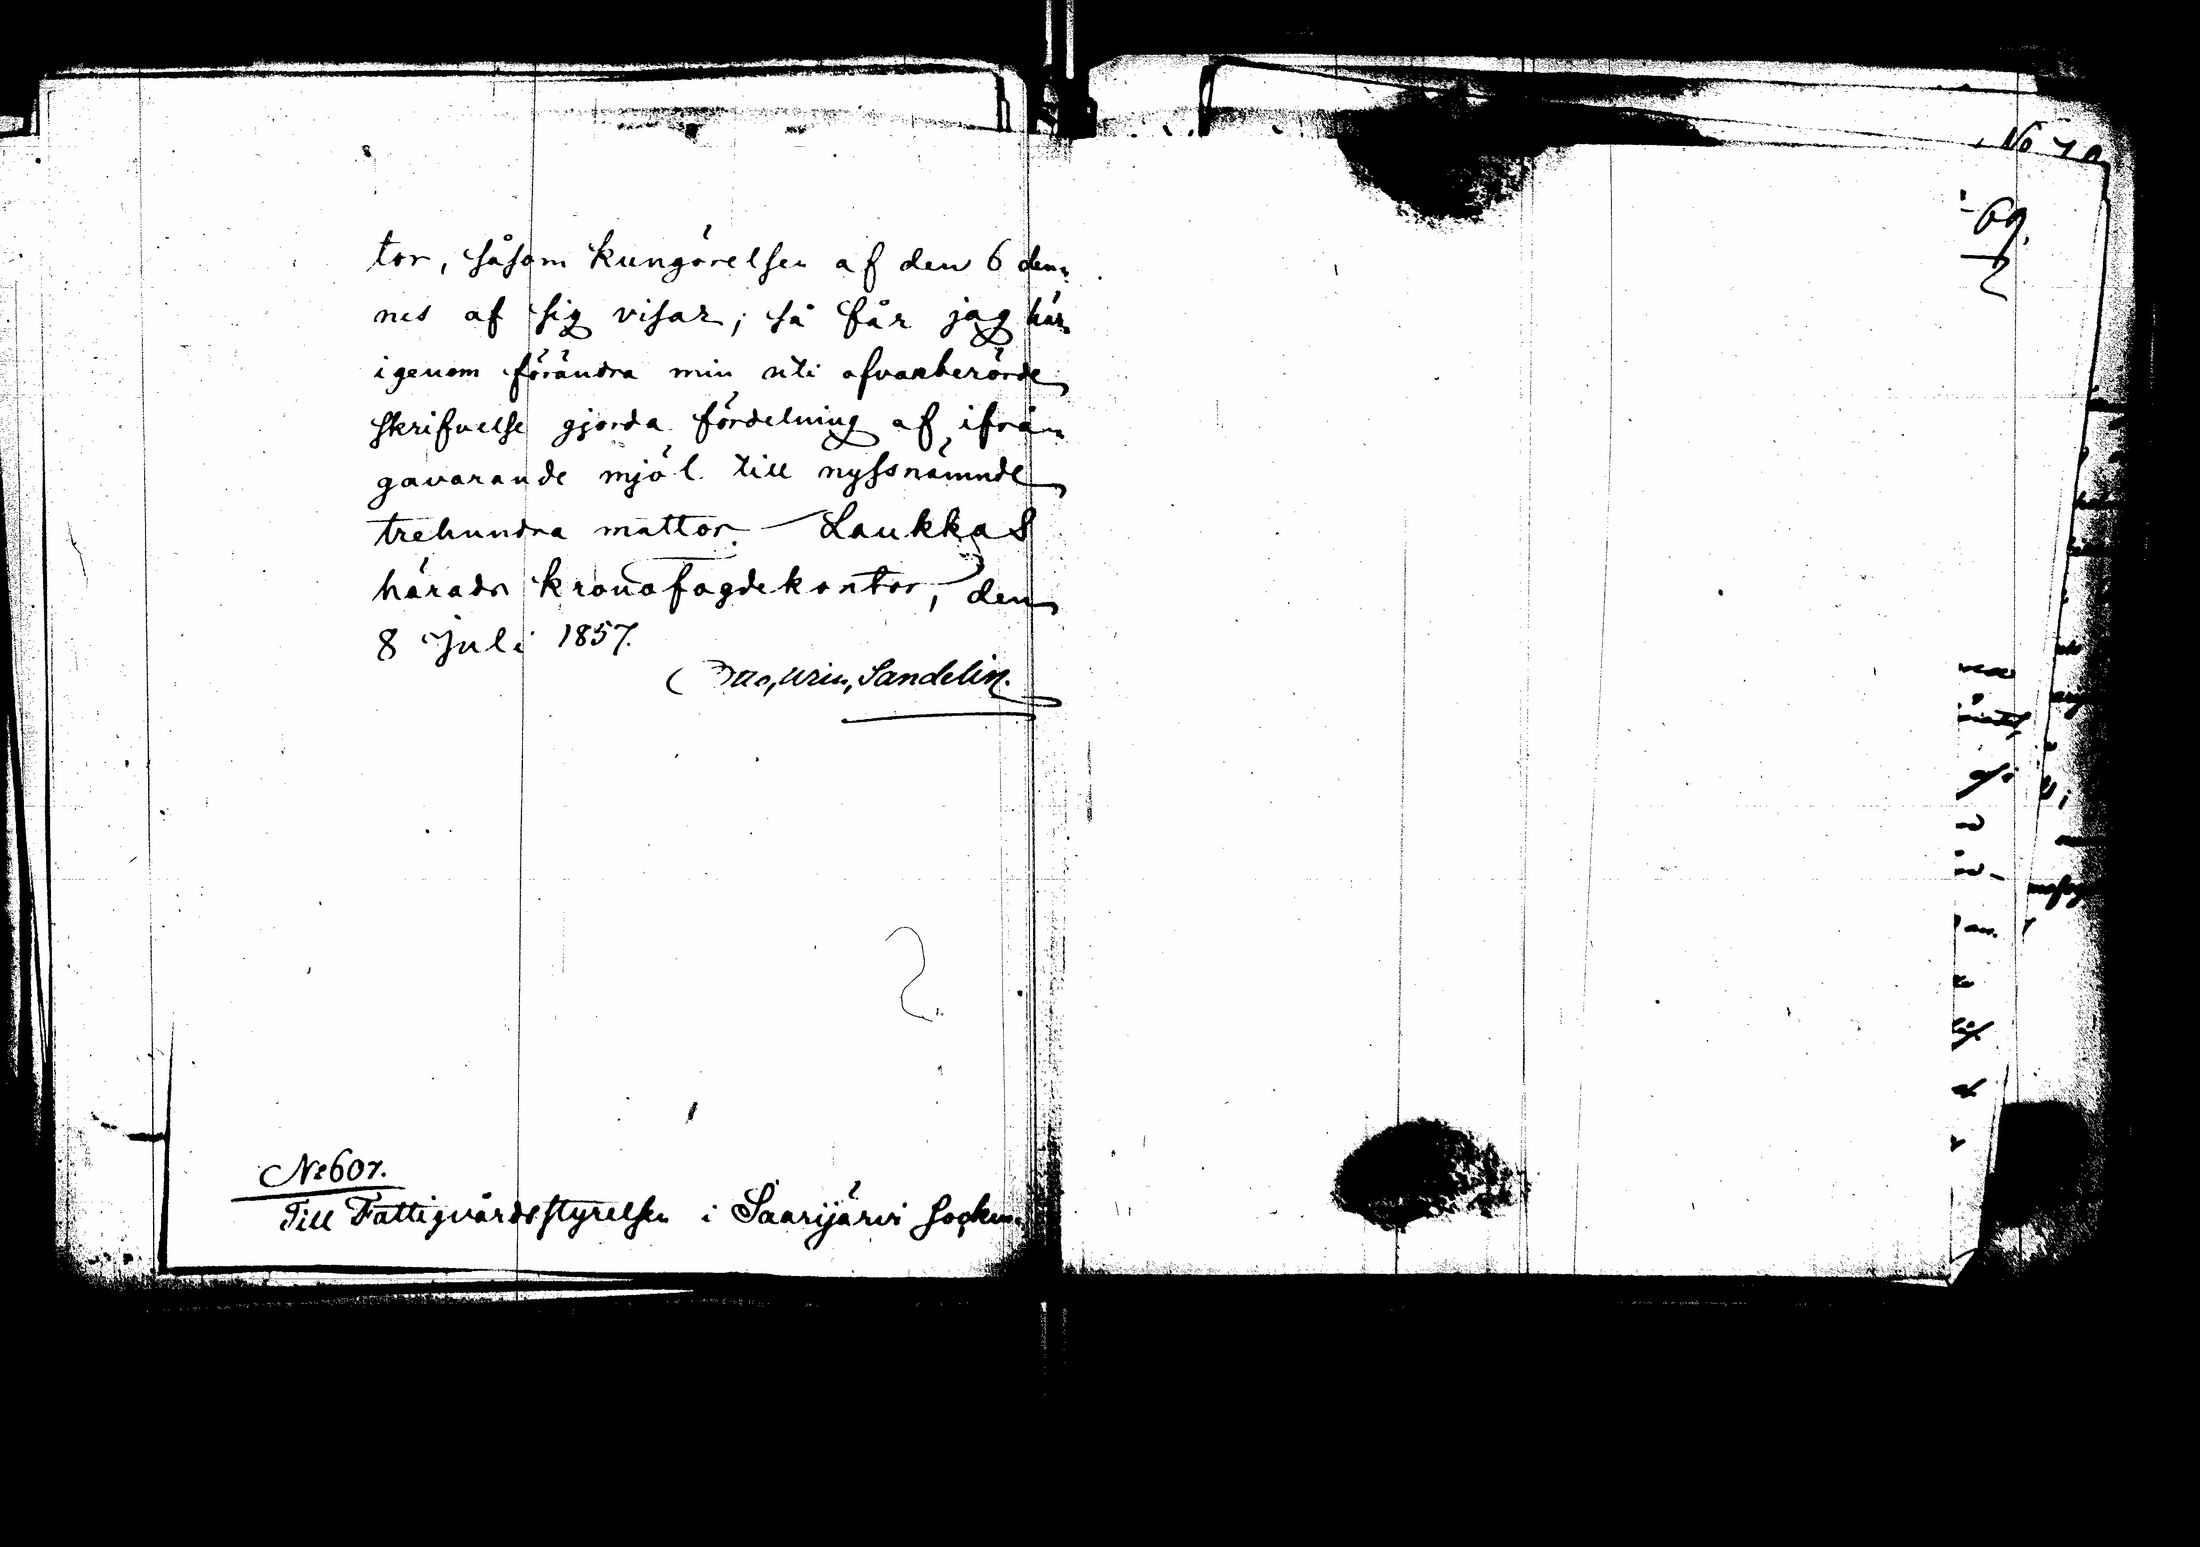 tor, såsom kungörelsen af den 6 den-
nes af sig visar; så får jag här
igenom förändra min uti ofvanberörde
skrifvelse gjorda fördelning af ifrå-
gavarande mjöl till nyssnämnde
trehundra mattor. Laukkas
härads kronofogdekontor, den
8 Juli 1857.
Sandelin.
No 607.
Till Fattigvårdsstyrelsen i Saarijärvi Socken
No
69.